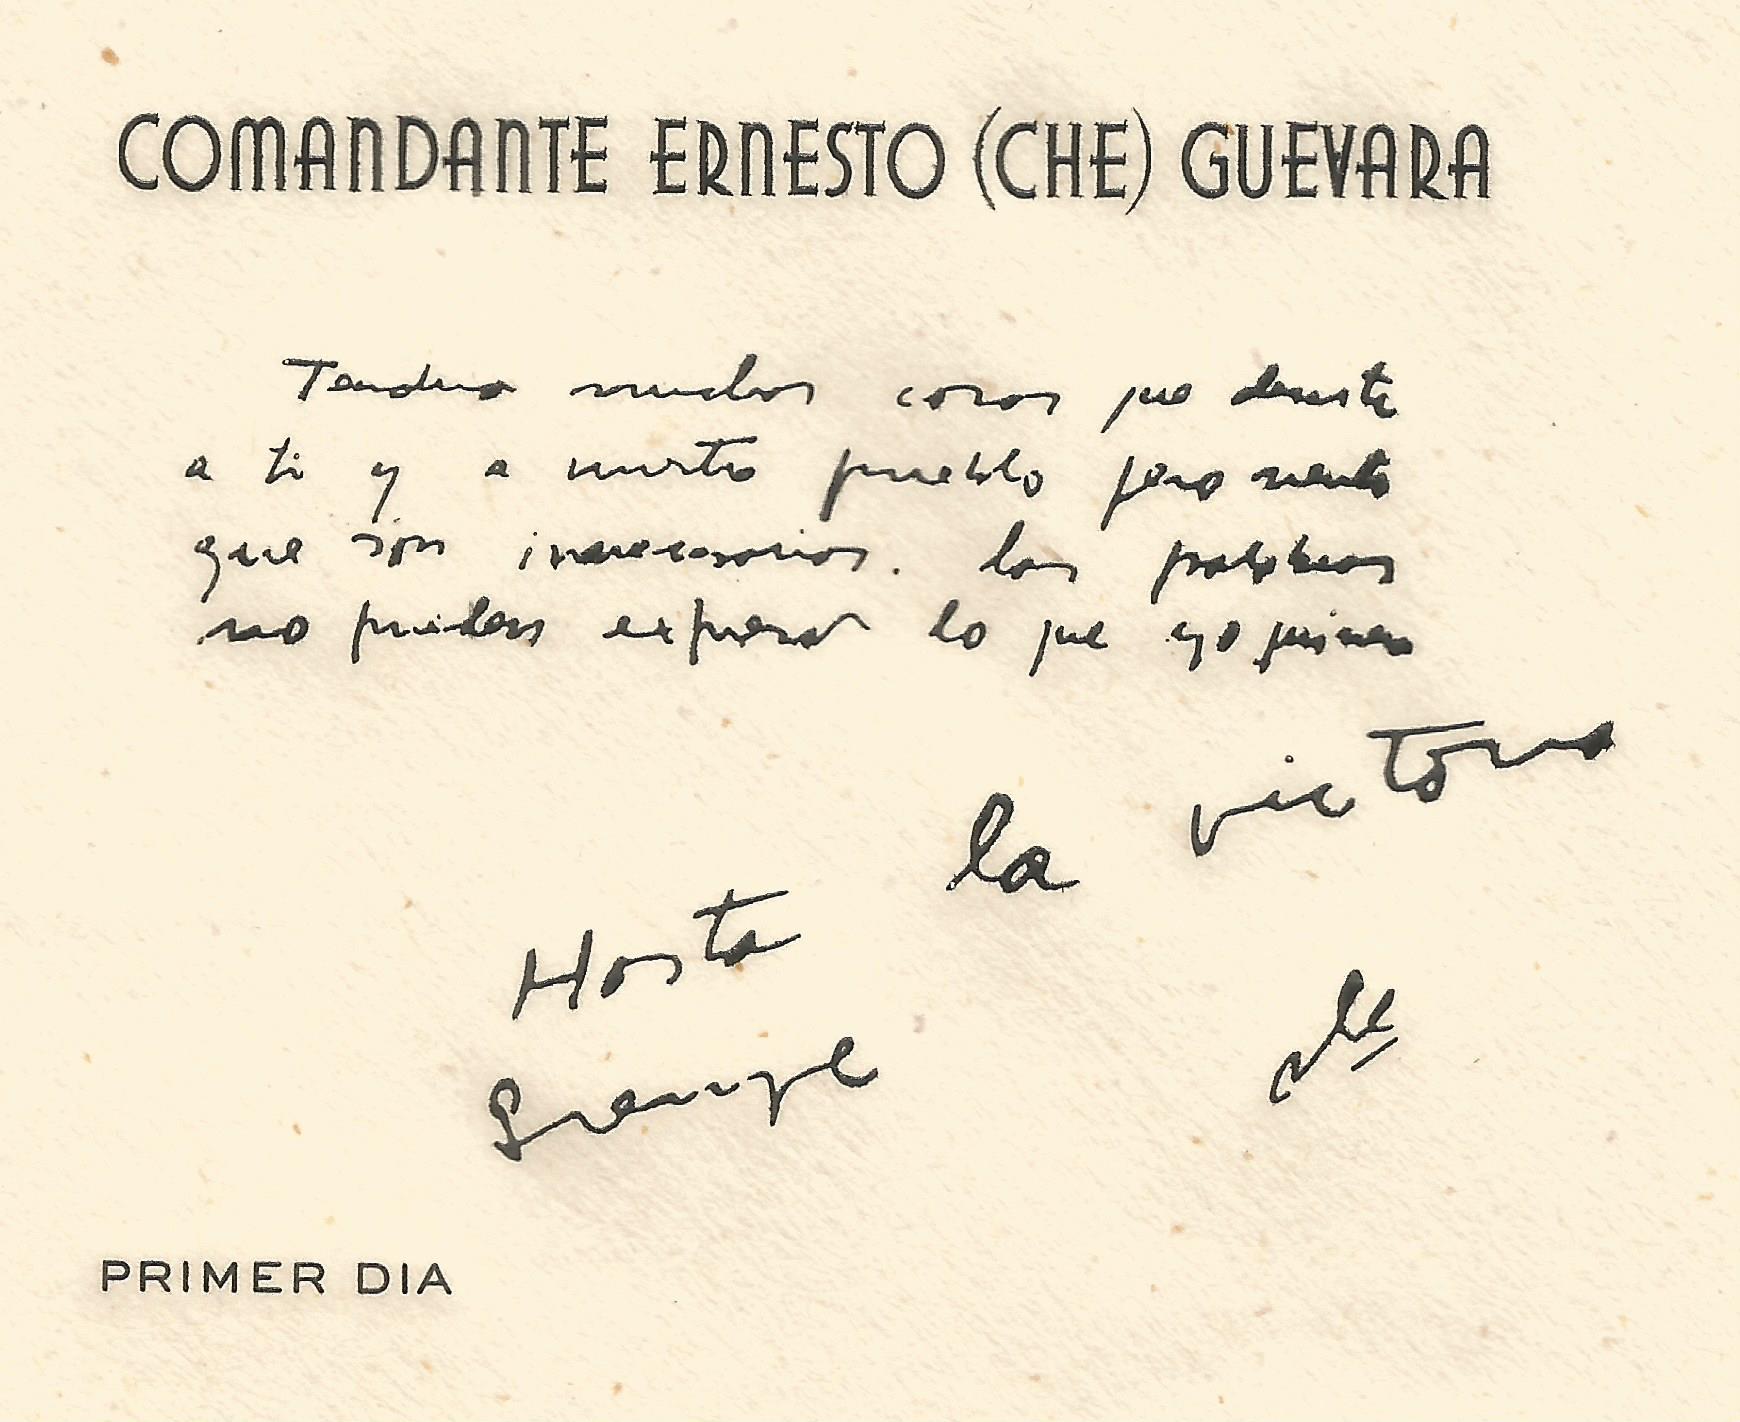 COMANDANTE ERNESTO (CHE) GUEVARA
Tendría muchas cosas que decirte
a ti y a nuestro pueblo pero siento
que son innecesarias. las palabras
no pueden expresar lo que yo quisiera
Hasta la victoria
Siempre Che
PRIMER DIA